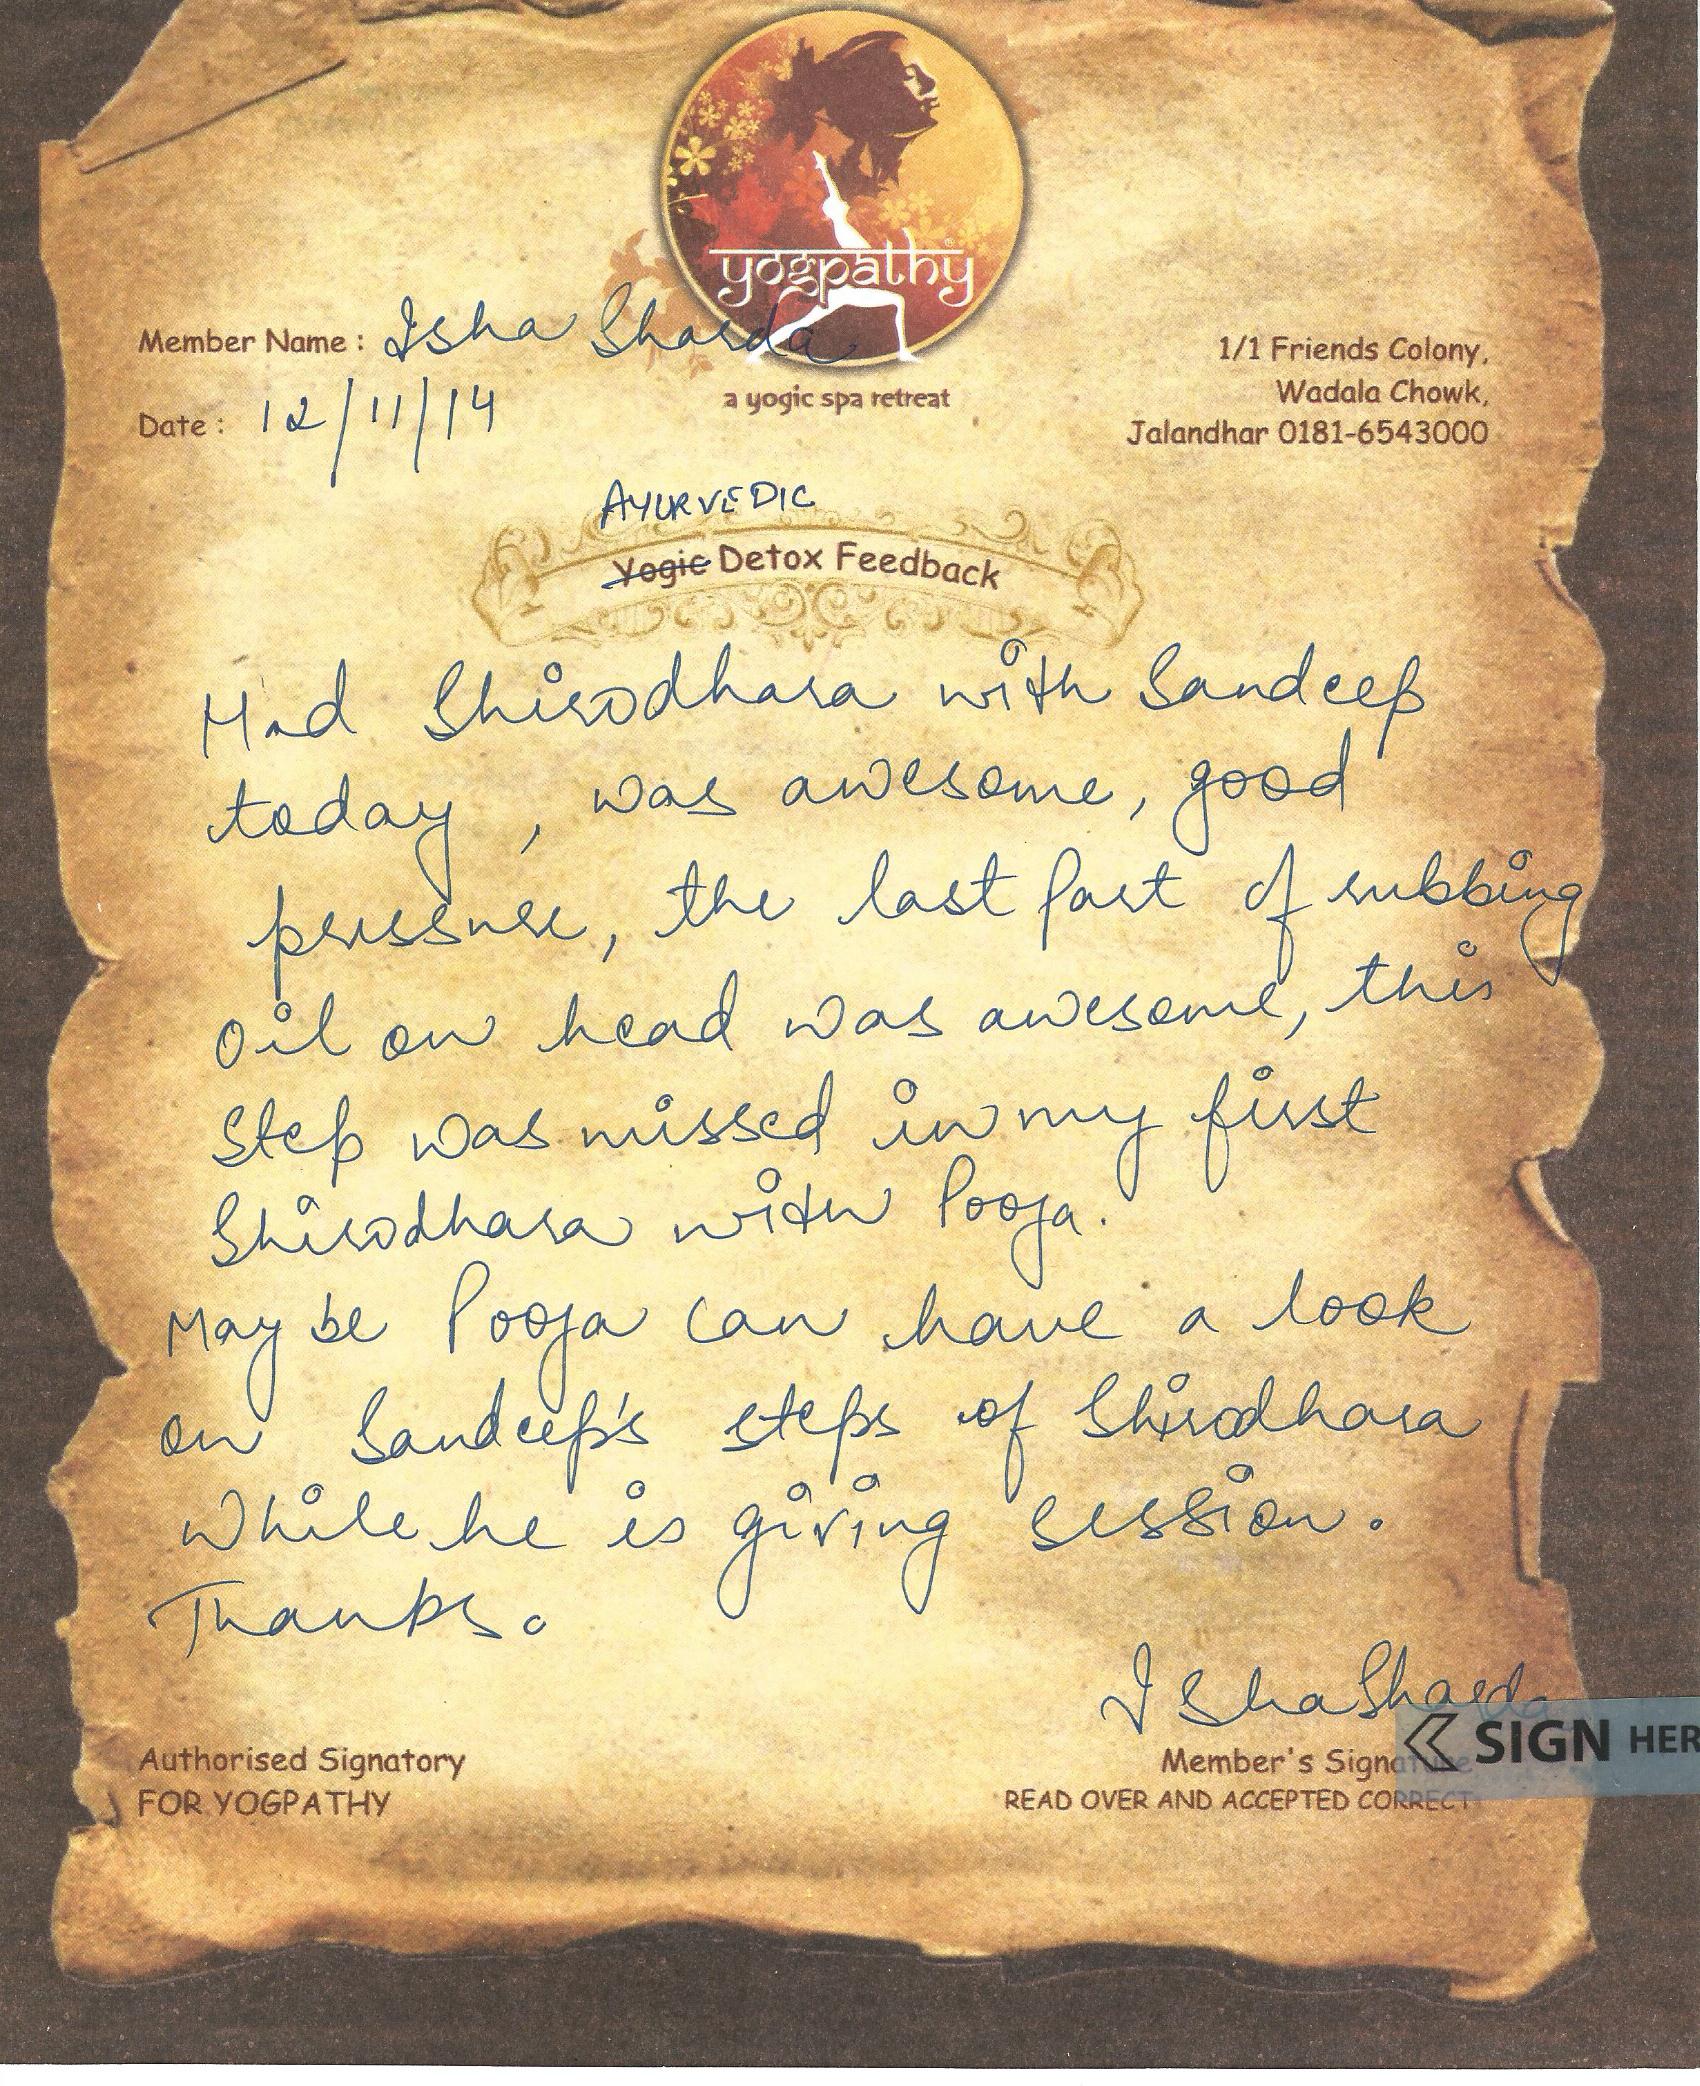 yogpathy
Member Name : Isha Sharda
a yogic spa retreat
1/1 Friends Colony,
Wadala Chowk,
Jalandhar 0181-6543000
Date : 12/11/14
AYURVEDIC
Yogic Detox Feedback
Had Shirodhara with Sandeep
today, was awesome, good
pressure, the last part of rubbing
oil on head was awesome, this
step was missed in my first
Shirodhara with Pooja.
May be Pooja can have a look
on Sandeep's steps of Shirodhara
while he is giving session.
Thanks.
Isha Sharda
SIGN HER
Authorised Signatory
FOR YOGPATHY
Member's Signature
READ OVER AND ACCEPTED CORRECT